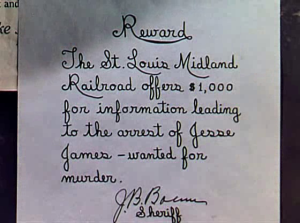 and
Reward
The St. Louis Midland
Railroad offers $1,000
for information leading
to the arrest of Jesse
James - wanted for
murder.
J.B.
Sheriff